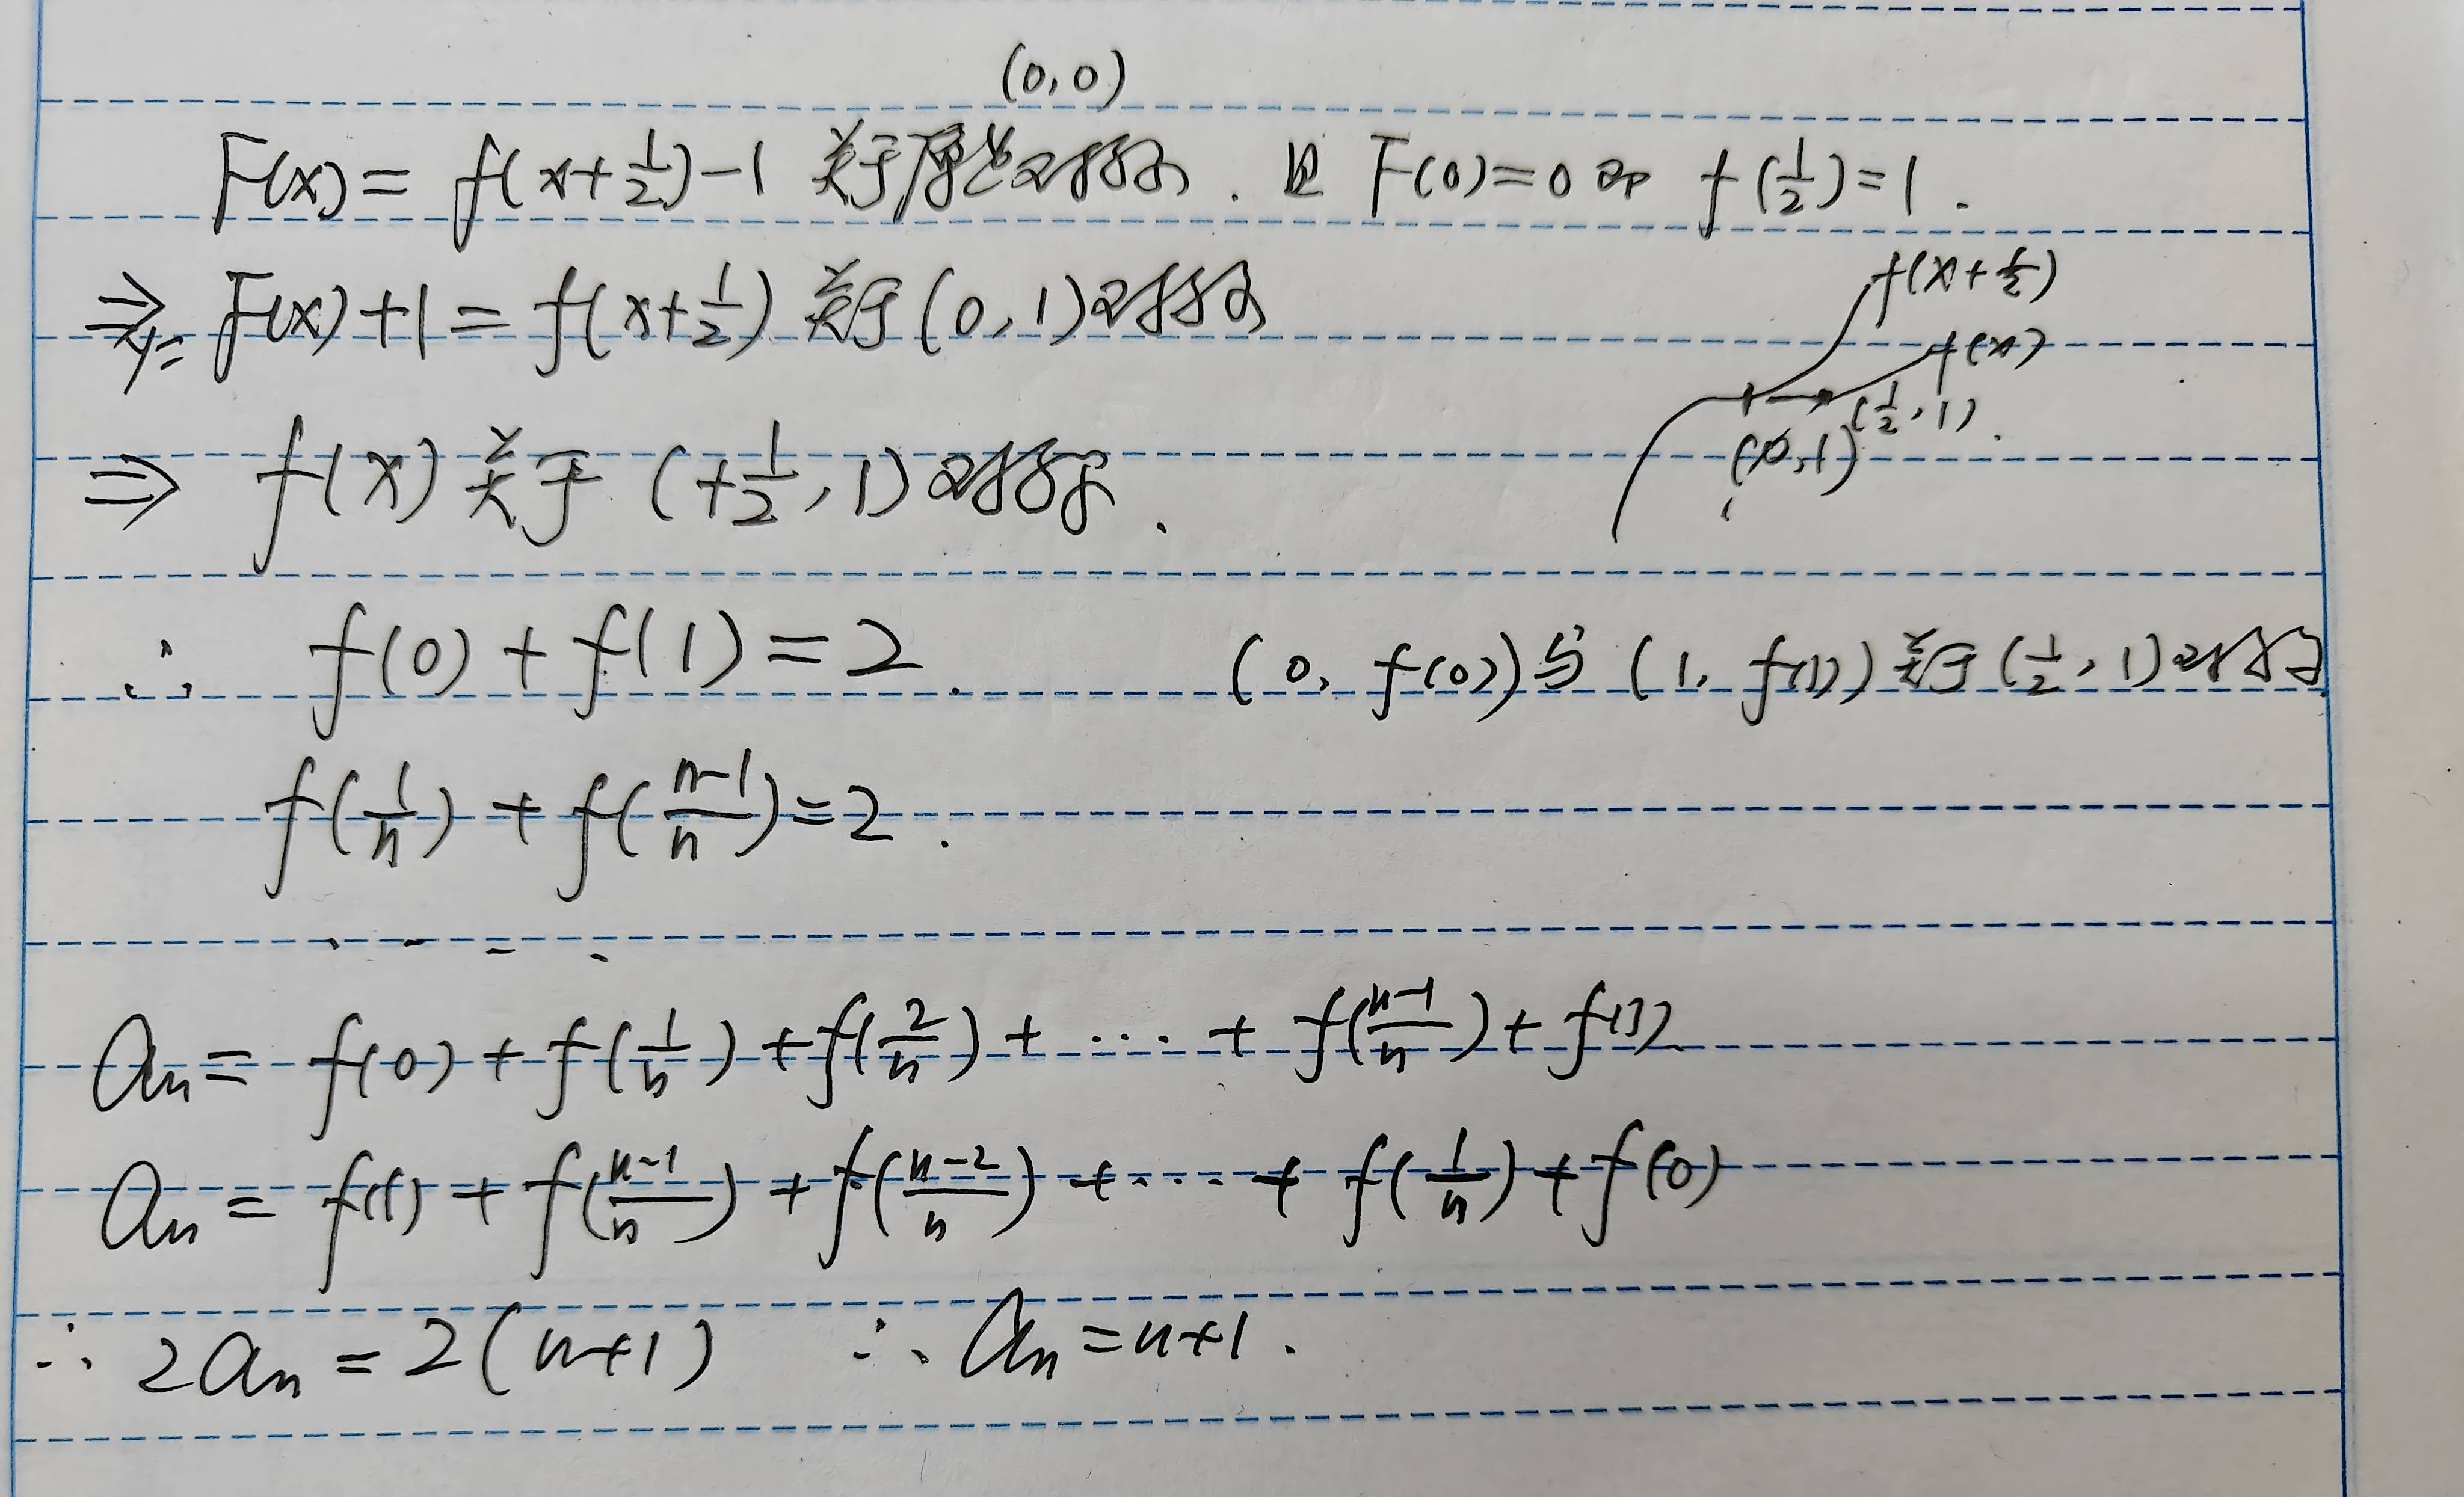 (0,0)
F(x)= f(x+1/2)-1 关于原点对称. 且 F(0)=0 即 f(1/2)=1.
⇒ y= F(x)+1= f(x+1/2) 关于(0,1)对称
f(x+1/2)
f(x)
(1/2,1).
(0,1)
⇒ f(x) 关于 (+1/2,1)对称.
∴ f(0)+f(1)=2. (0, f(0))与(1, f(1))关于(1/2,1)对称
f(1/n)+f((n-1)/n)=2.
....
an= f(0)+f(1/n)+f(2/n)+ ··· + f((n-1)/n)+f(1)
an= f(1)+f((n-1)/n)+f((n-2)/n)+···+f(1/n)+f(0)
∴ 2an=2(n+1) ∴ an=n+1.